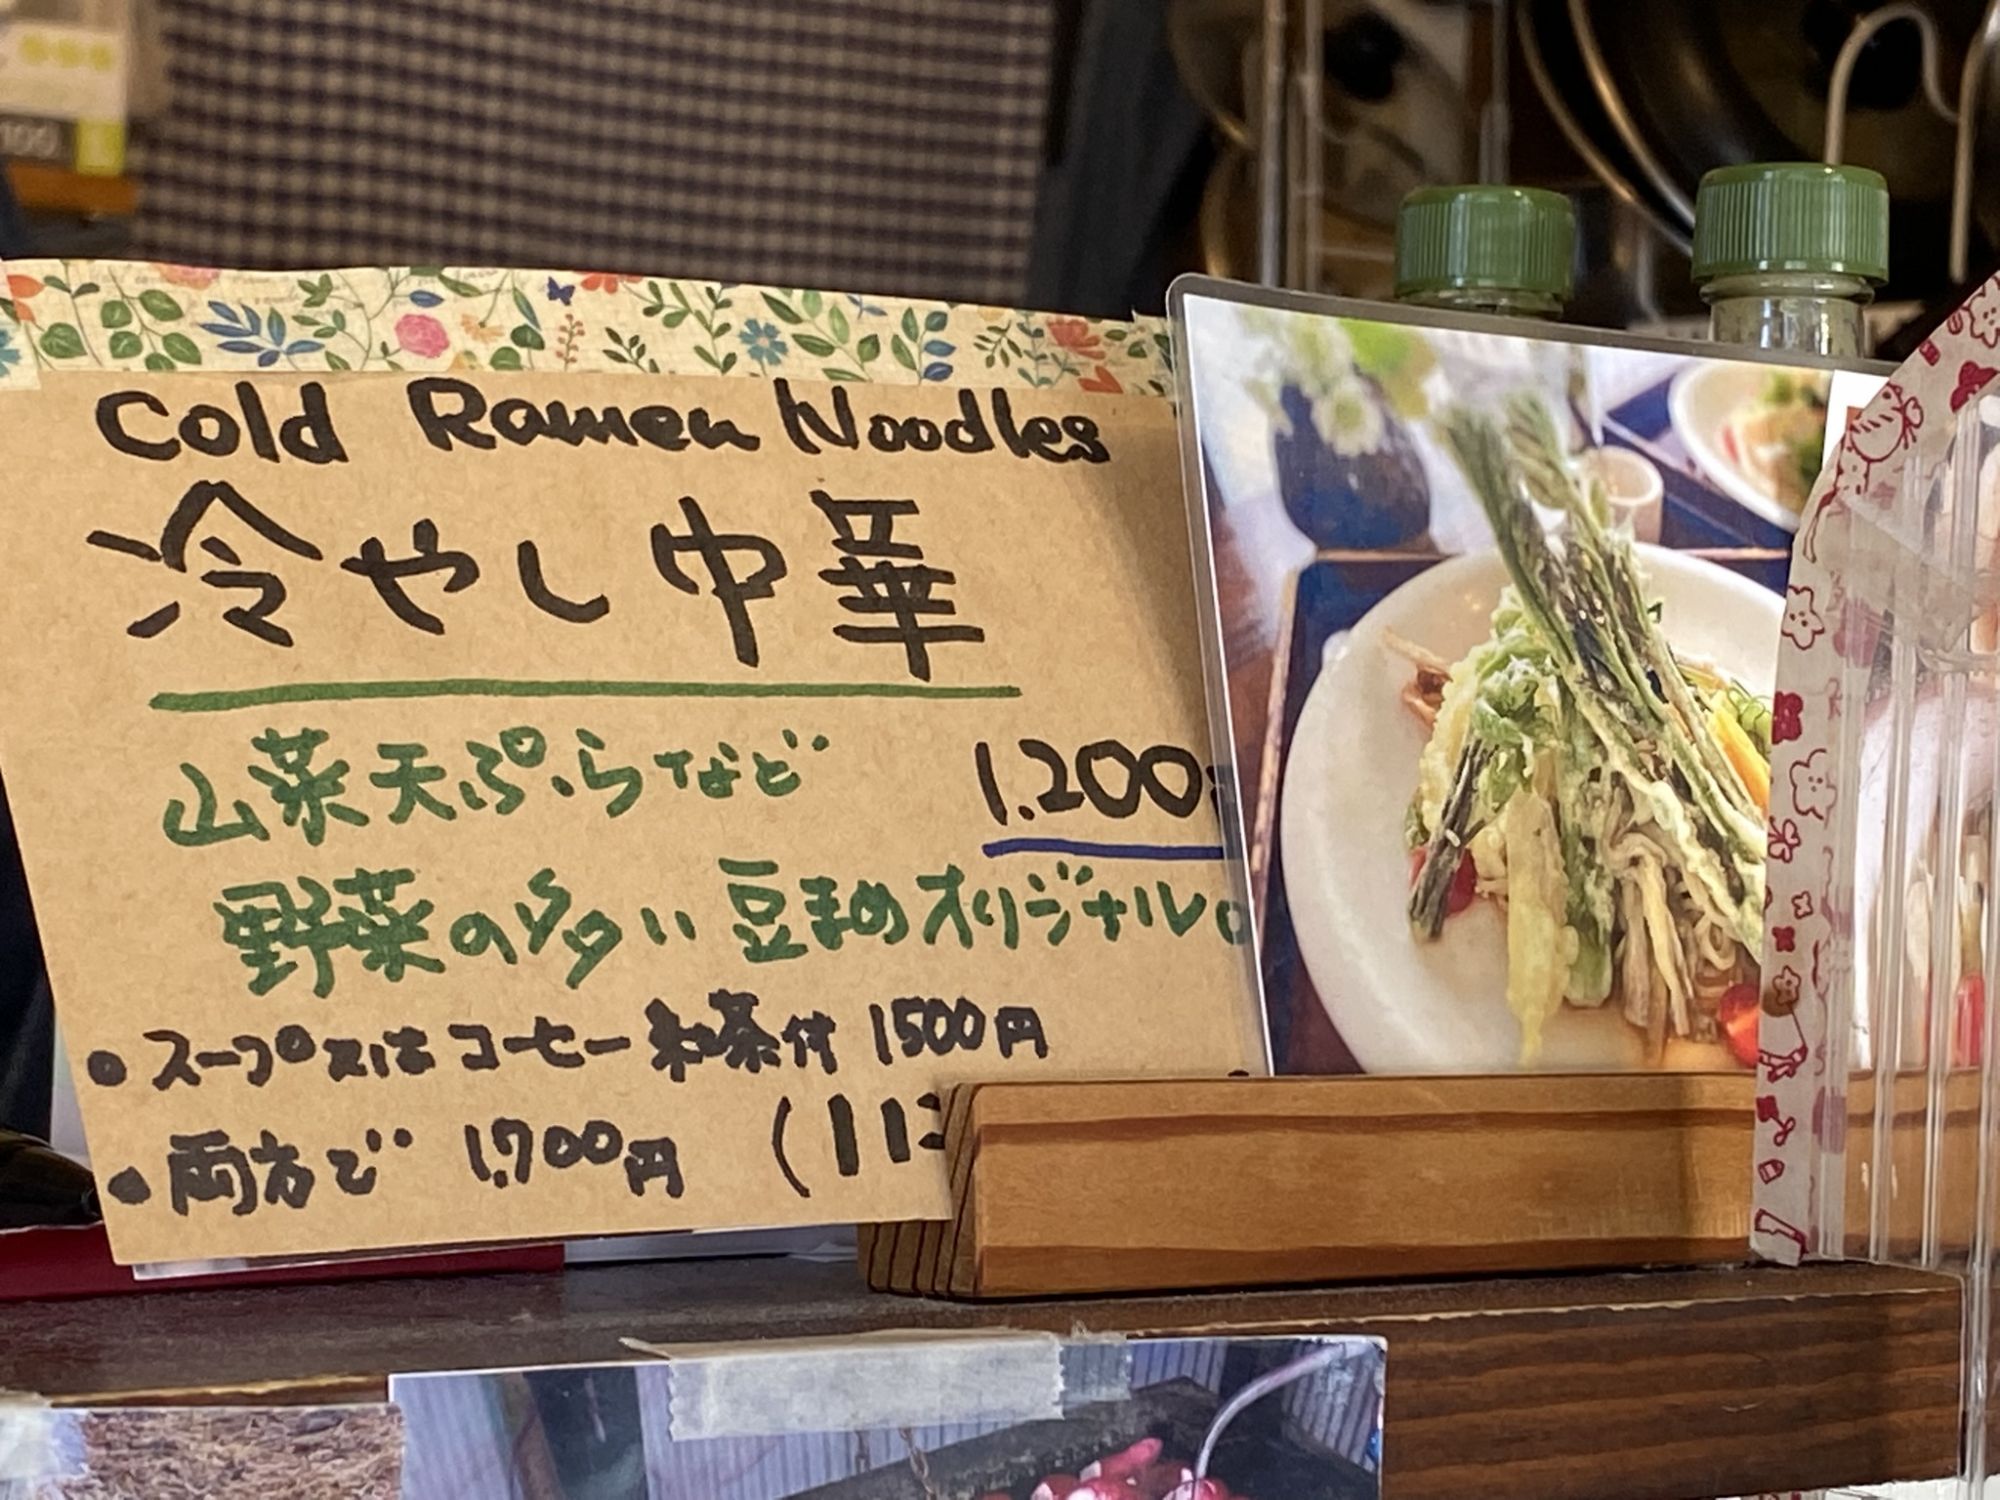 Cold Ramen Noodles
冷やし中華
山菜天ぷらなど 1.200
野菜の多い豆まめオリジナル
• スープ又はコーヒー紅茶付 1500円
• 両方で 1.700円 (11:
100